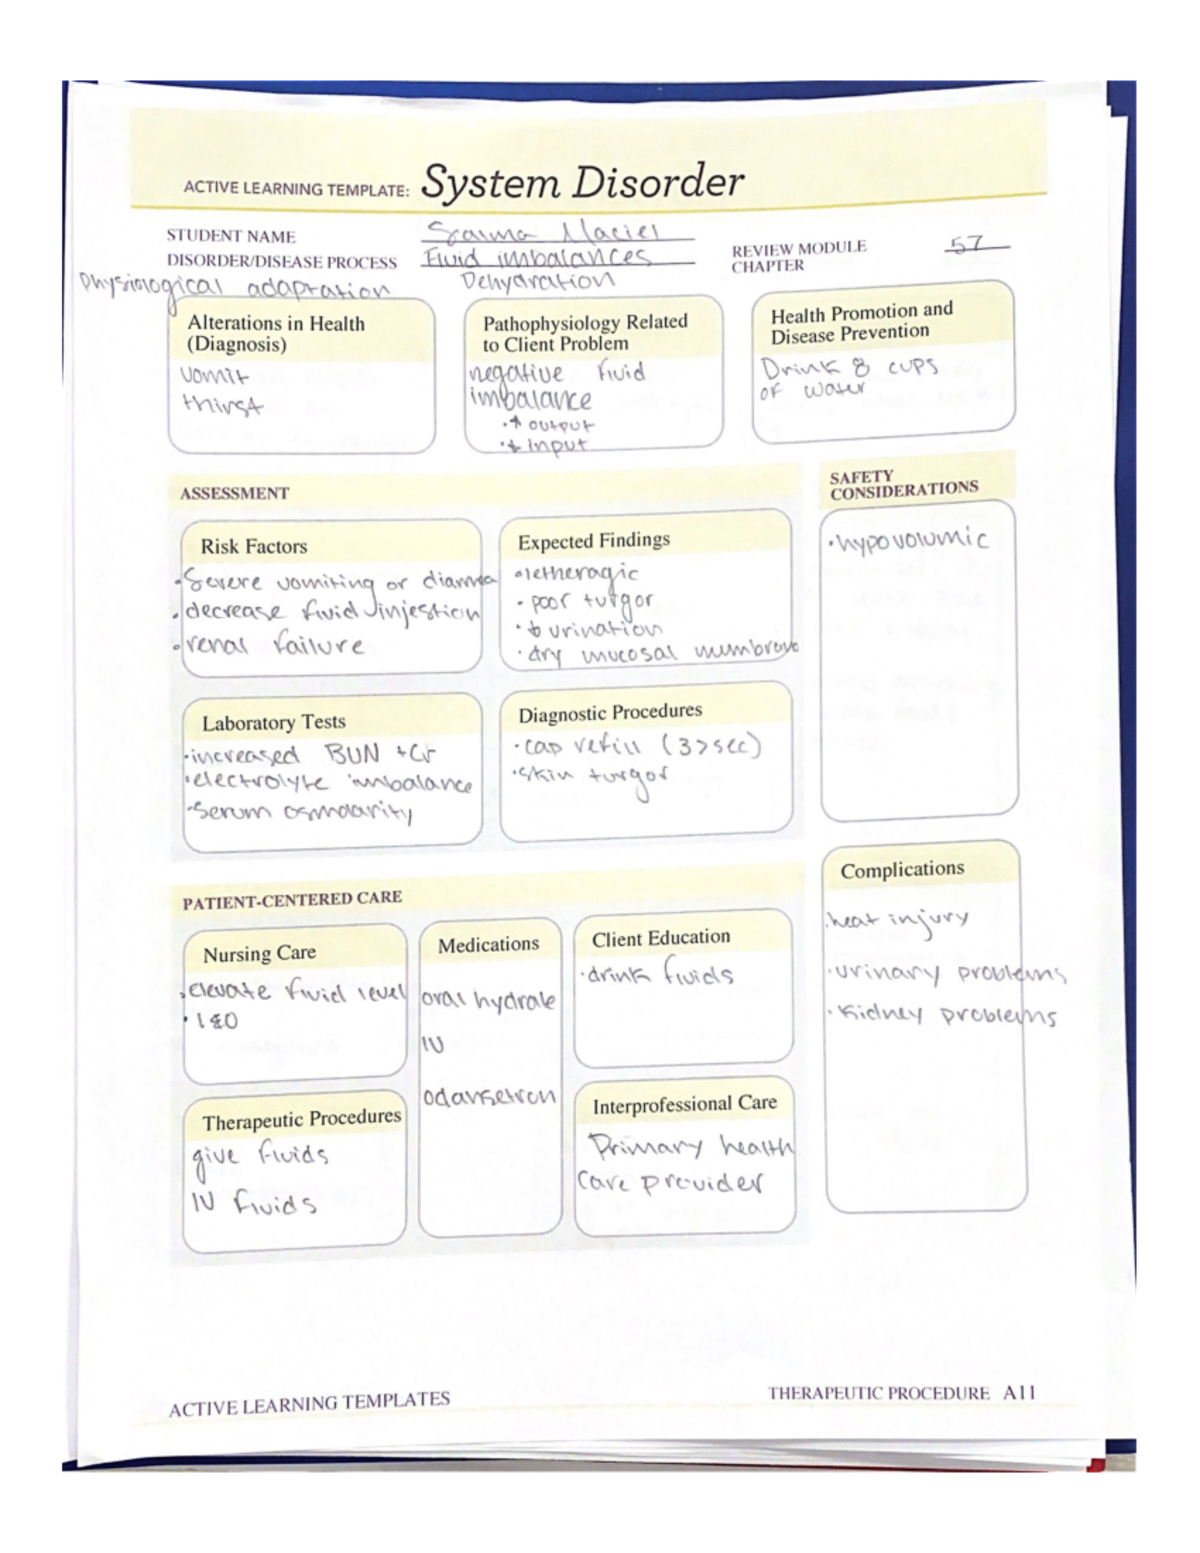 ACTIVE LEARNING TEMPLATE: System Disorder
STUDENT NAME Maciel
DISORDER/DISEASE PROCESS Fluid imbalances
REVIEW MODULE
CHAPTER 57
Physiological adaptation Dehydration
Alterations in Health
(Diagnosis)
vomit
thirst
Pathophysiology Related
to Client Problem
negative fluid
imbalance
• ↑ output
• ↓ input
Health Promotion and
Disease Prevention
Drink 8 cups
of water
ASSESSMENT
SAFETY
CONSIDERATIONS
• hypovolumic
Risk Factors
• Severe vomiting or diarrhea
• decrease fluid injestion
• renal failure
Expected Findings
• letheragic
• poor turgor
• ↓ urination
• dry mucosal mumbrove
Laboratory Tests
• increased BUN + Cr
• electrolyte imbalance
• Serum osmolarity
Diagnostic Procedures
• cap refill (3>sec)
• skin turgor
PATIENT-CENTERED CARE
Complications
• heat injury
• urinary problems
• Kidney problems
Nursing Care
• elevate fluid level
• I&O
Medications
oral hydrate
IV
odansetron
Client Education
• drink fluids
Therapeutic Procedures
give fluids
IV fluids
Interprofessional Care
Primary health
care provider
ACTIVE LEARNING TEMPLATES
THERAPEUTIC PROCEDURE A11